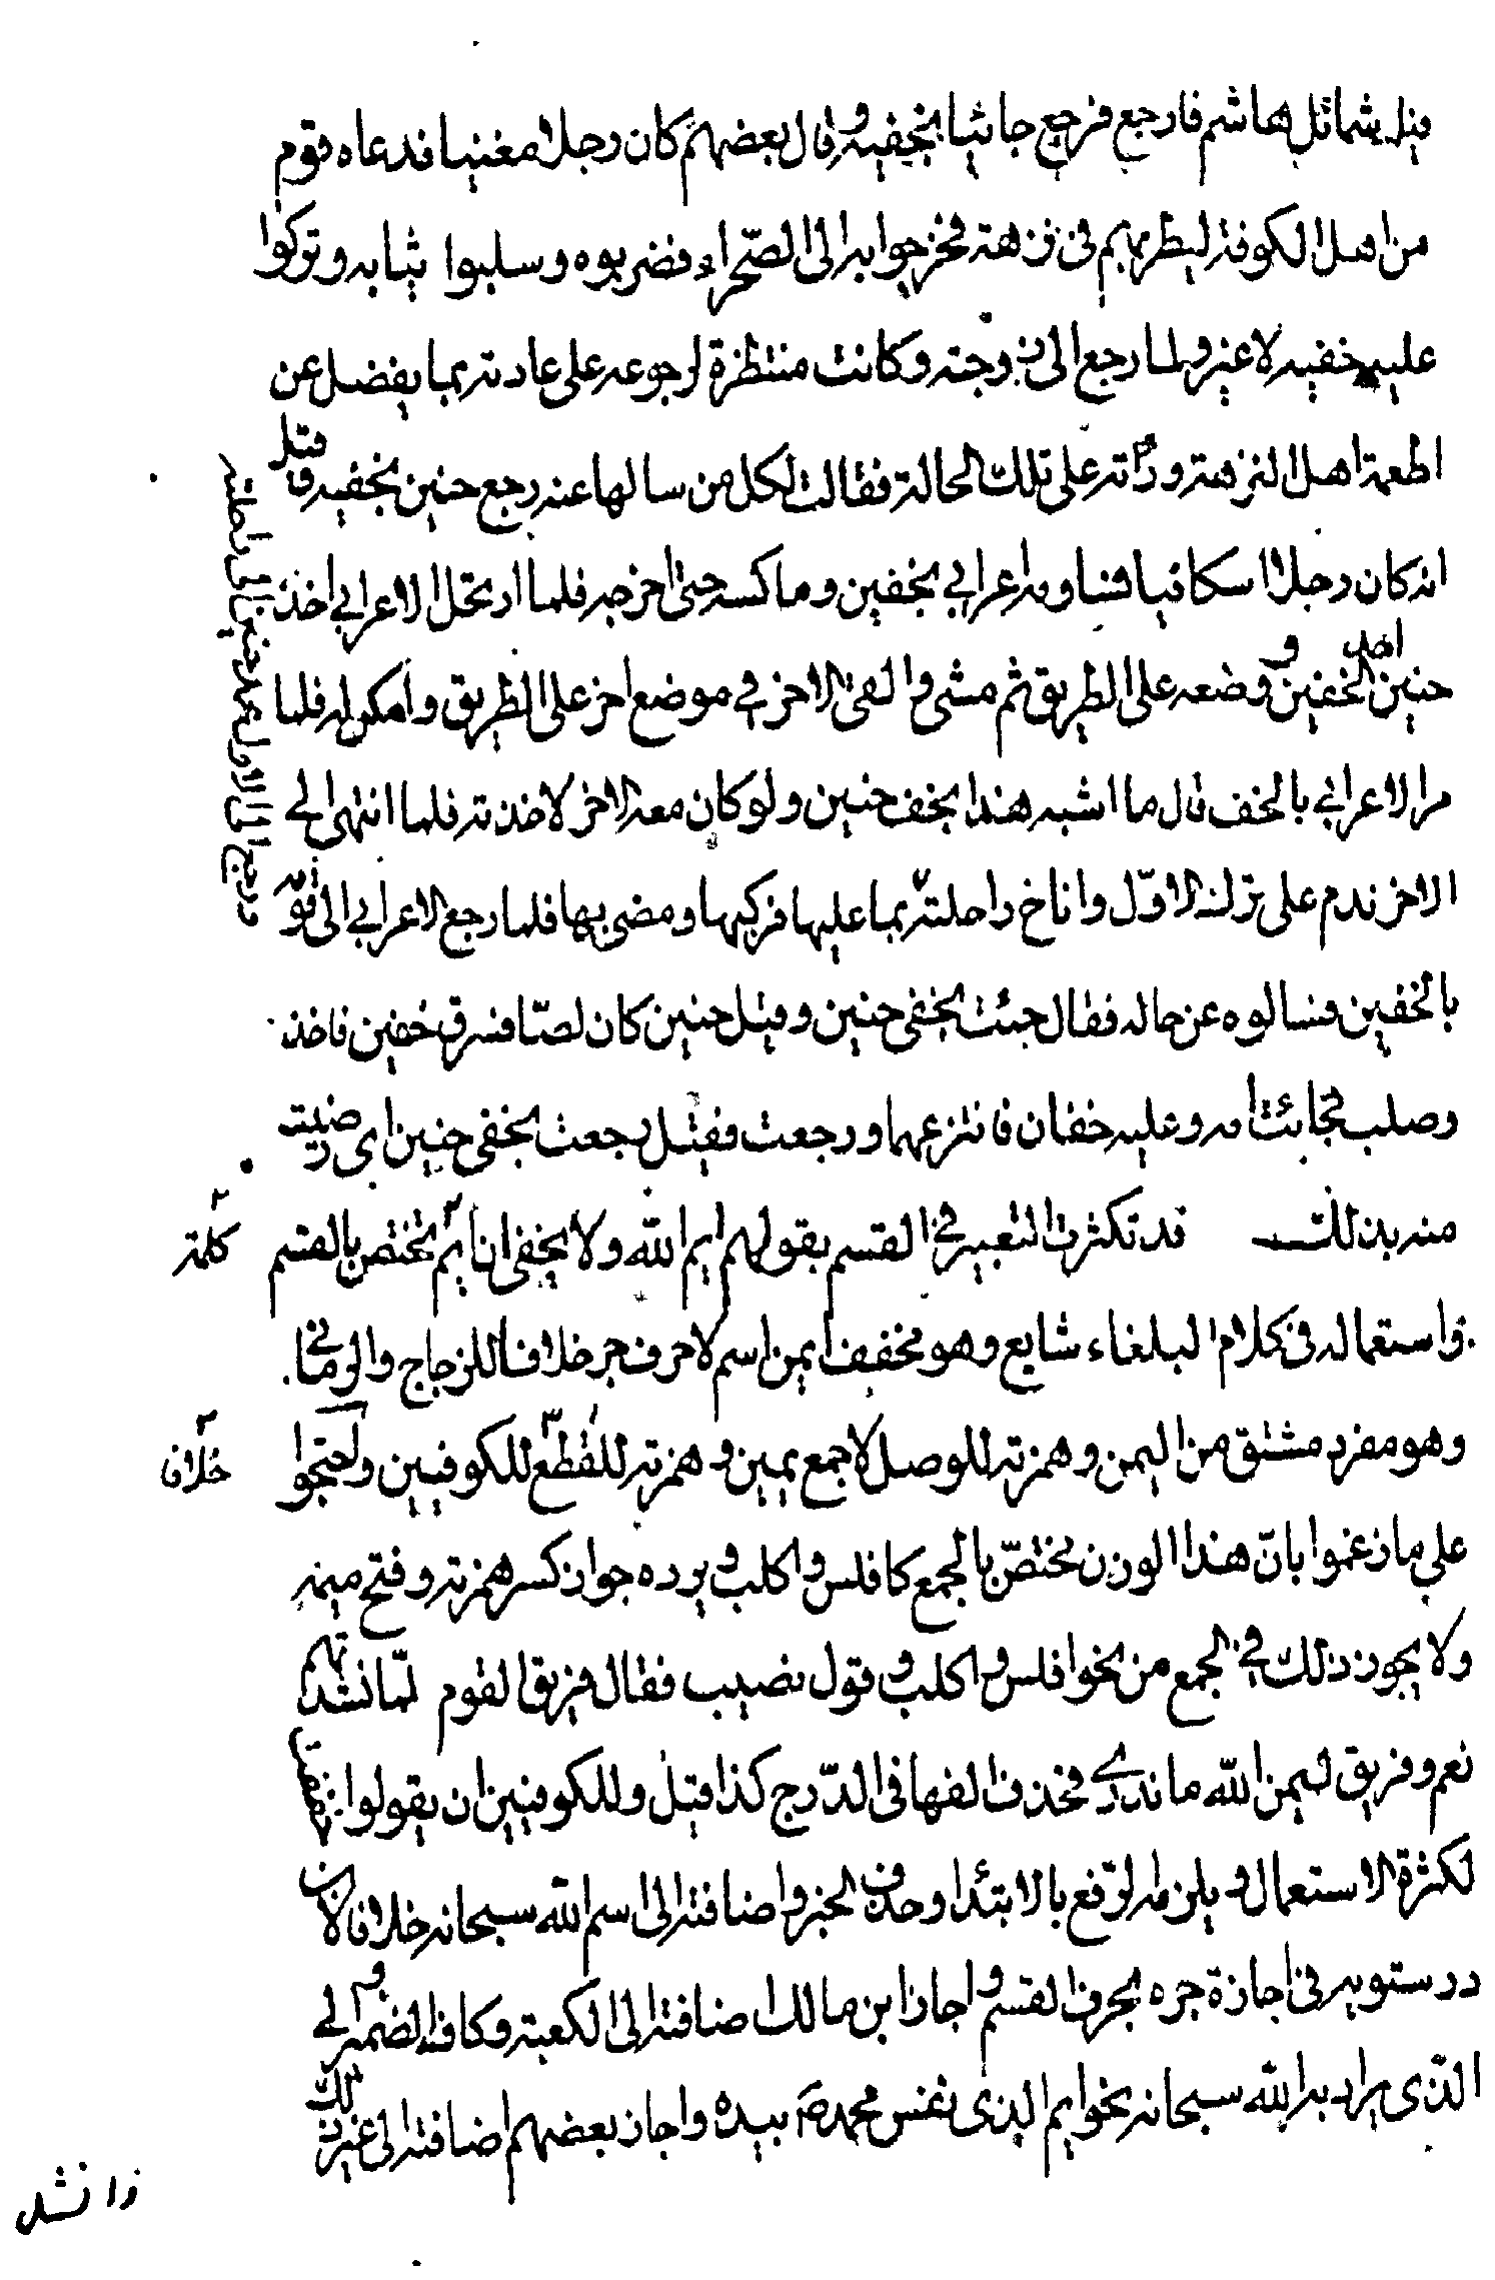 فيك شمائل هاشم فارجع فرجع جائيا بخفيه وقال بعضهم كان رجلا مغنيا فدعاه قوم
من اهل الكوفة ليطربهم في نزهة فخرجوا به الى الصّحراء فضربوه وسلبوا ثيابه وتركوا
عليه خفيه لاغير ولما رجع الى زوجته وكانت منتظرة لرجوعه على عادته بما يفضل عن
اطعمة اهل النزهة وراته على تلك الحالة فقالت لكل من سالها عنه رجع حنين بخفيه وقيل
انه كان رجلا اسكافيا فساومه اعرابي بخفين وماكسه حتى احرجه فلما ارتحل الاعرابي اخذ
حنين احد الخفين ووضعه على الطريق ثم مشى والقى الاخر في موضع اخر على الطريق وامكن له فلما
مر الاعرابي بالخف قال ما اشبه هذا بخف حنين ولو كان معه الاخر لاخذته فلما انتهى الى
الاخر ندم على ترك الاوّل واناخ راحلته بما عليها فركبها ومضى بها فلما رجع الاعرابي الى قومه
ورجع الى الاول
بالخفين فسالوه عن حاله فقال جئت بخفى حنين وقيل حنين كان لصّا فسرق خفين فاخذ
وصلب فجائت امه وعليه خفان فانتزعهما ورجعت فقيل رجعت بخفى حنين اى رضيت
منه بذلك قد تكثرت التعبير في القسم بقولهم ايم الله ولا يخفى ان ايم تختص بالقسم
كلمة
واستعماله في كلام البلغاء شايع وهو مخفف ايمن اسم لا حرف جر خلافا للزجاج والرماني
وهو مفرد مشتق من اليمن وهمزته للوصل لا جمع يمين وهمزته للقطع للكوفيين واحتجوا
خلافا
على ما زعموا بانّ هذا الوزن مختصّ بالجمع كافلس واكلب ويرده جواز كسر همزته وفتح ميمه
ولا يجوز ذلك في الجمع من نحو افلس واكلب وقول نصيب فقال فريق القوم لمّا نشدتهم
نعم وفريق ليمن الله ما ندرى فحذف الفها في الدّرج كذا قيل وللكوفيين ان يقولوا
لكثرة الاستعمال ويلزمه الرّفع بالابتدا وحذف الخبر واضافته الى اسم الله سبحانه خلافا لابن
درستويه في اجازة جره بحرف القسم واجاز ابن مالك اضافته الى الكعبة وكاف الضمير والى
الذّى يراد به الله سبحانه نحو ايم الذى نفس محمد ص بيده واجاز بعضهم اضافته الى غير ذلك
وانشد